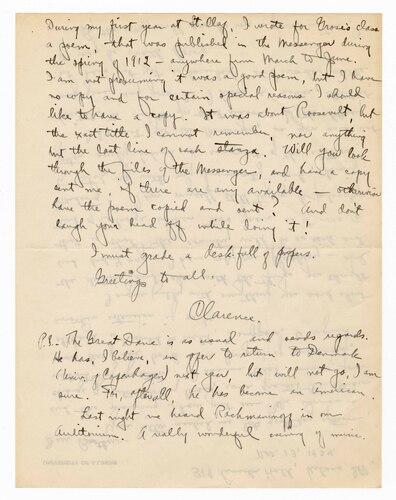 During my first year at St. Olaf, I wrote for Grose's class
a poem, that was published in the Messenger during
the spring of 1912 - anywhere from March to June.
I am not presuming it was a good poem, but I have
no copy and for certain special reasons I should
like to have a copy. It was about Roosevelt, but
the exact title I cannot remember nor anything
but the last line of each stanza. Will you look
through the files of the Messenger, and have a copy
sent me, if there are any available - otherwise
have the poem copied and sent? And don't
laugh your head off while doing it!
I must grade a desk-full of papers.
Greetings to all.
Clarence.
P.S. The Great Dane is as usual and sends regards.
He has, I believe, an offer to return to Denmark
(Univ. of Copenhagen) next year, but will not go, I am
sure. For, after all, he has become an American.
Last night we heard Rachmaninoff in our
Auditorium. A really wonderful evening of music.